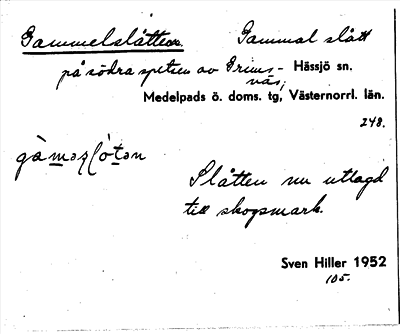 Gammelslåtten Gammal slått
på södra spetsen av Grims- Hässjö sn.
näs,
Medelpads ö. doms. tg, Västernorrl. län.
248.
Slåtten nu utlagd
till skogsmark.
Sven Hiller 1952
105.